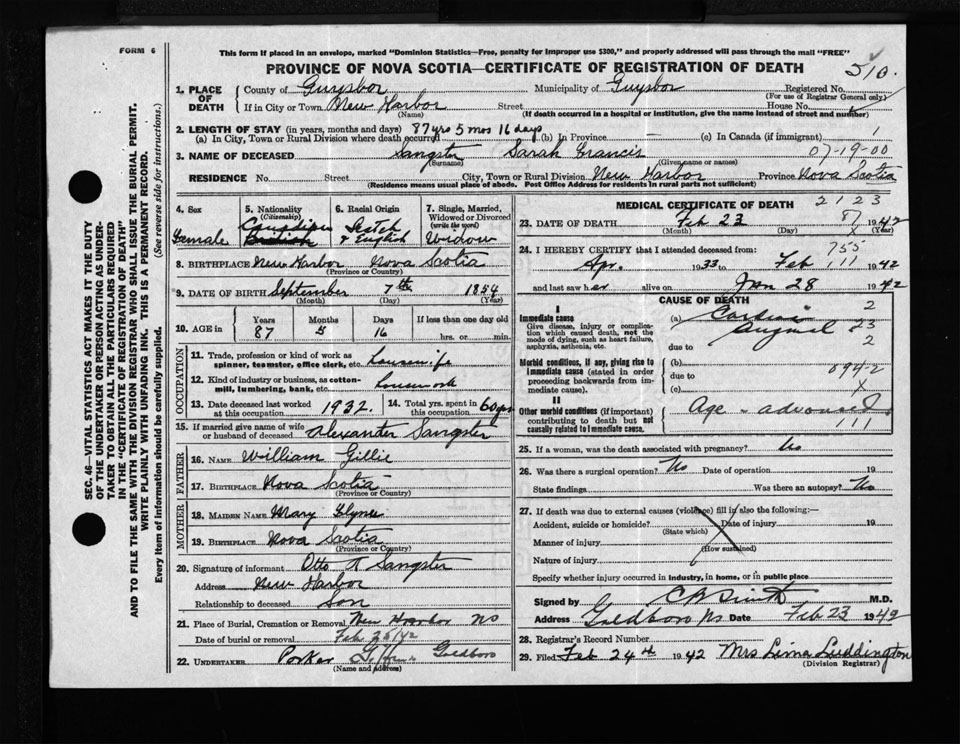 FORM 6
This form if placed in an envelope, marked "Dominion Statistics—Free, penalty for improper use $300," and properly addressed will pass through the mail "FREE"
PROVINCE OF NOVA SCOTIA—CERTIFICATE OF REGISTRATION OF DEATH
510.
1. PLACE OF DEATH
County of Guysbor Municipality of Guysbor Registered No.
(For use of Registrar General only)
If in City or Town New Harbor Street House No.
(Name) (If death occurred in a hospital or institution, give the name instead of street and number)
2. LENGTH OF STAY (in years, months and days) 87 yrs 5 mos 16 days
(a) In City, Town or Rural Division where death occurred (b) In Province — (c) In Canada (if immigrant) 1
07-19-00
3. NAME OF DECEASED Sangster Sarah Francis
(Surname) (Given name or names)
RESIDENCE No. Street City, Town or Rural Division New Harbor Province Nova Scotia
(Residence means usual place of abode. Post Office Address for residents in rural parts not sufficient)
4. Sex Female
5. Nationality (Citizenship) Canadian British
6. Racial Origin Scotch & English
7. Single, Married, Widowed or Divorced (write the word) Widow
8. BIRTHPLACE New Harbor Nova Scotia
(Province or Country)
9. DATE OF BIRTH September 7th 1854
(Month) (Day) (Year)
10. AGE in Years Months Days If less than one day old
87 5 16 hrs. or min.
OCCUPATION
11. Trade, profession or kind of work as spinner, teamster, office clerk, etc. Housewife
12. Kind of industry or business, as cotton-mill, lumbering, bank, etc. Housework
13. Date deceased last worked at this occupation 1932. 14. Total yrs. spent in this occupation 60 yrs
15. If married give name of wife or husband of deceased Alexander Sangster
FATHER
16. NAME William Gillie
17. BIRTHPLACE Nova Scotia
(Province or Country)
MOTHER
18. MAIDEN NAME Mary
19. BIRTHPLACE Nova Scotia
(Province or Country)
20. Signature of informant Otto R Sangster
Address New Harbor
Relationship to deceased Son
21. Place of Burial, Cremation or Removal New Harbor NS
Date of burial or removal Feb 25/42
22. UNDERTAKER Porker Goldboro
(Name and address)
MEDICAL CERTIFICATE OF DEATH 2123
23. DATE OF DEATH Feb 23 1942
(Month) (Day) (Year)
87
X
755
24. I HEREBY CERTIFY that I attended deceased from:
Apr. 1933 to Feb 1942
111
and last saw her alive on Jan 28 1942
CAUSE OF DEATH
I
Immediate cause
Give disease, injury or complication which caused death, not the mode of dying, such as heart failure, asphyxia, asthenia, etc.
(a) Cardiac 2
23
due to 2
Morbid conditions, if any, giving rise to immediate cause (stated in order proceeding backwards from immediate cause).
(b)
due to 094-2
(c) X
II
Other morbid conditions (if important) contributing to death but not causally related to immediate cause.
Age - advanced
111
25. If a woman, was the death associated with pregnancy? No
26. Was there a surgical operation? No Date of operation 19
State findings Was there an autopsy? No
27. If death was due to external causes (violence) fill in also the following:—
Accident, suicide or homicide? Date of injury 19
(State which)
Manner of injury
(How sustained)
Nature of injury
Specify whether injury occurred in industry, in home, or in public place
Signed by M.D.
Address Goldboro NS Date Feb 23 1942
28. Registrar's Record Number
29. Filed Feb 24th 1942 Mrs Lima Luddington
(Division Registrar)
SEC. 46—VITAL STATISTICS ACT MAKES IT THE DUTY
OF THE UNDERTAKER OR PERSON ACTING AS UNDER-
TAKER TO OBTAIN ALL THE PARTICULARS REQUIRED
IN THE "CERTIFICATE OF REGISTRATION OF DEATH"
AND TO FILE THE SAME WITH THE DIVISION REGISTRAR WHO SHALL ISSUE THE BURIAL PERMIT.
WRITE PLAINLY WITH UNFADING INK. THIS IS A PERMANENT RECORD.
Every item of information should be carefully supplied. (See reverse side for instructions.)